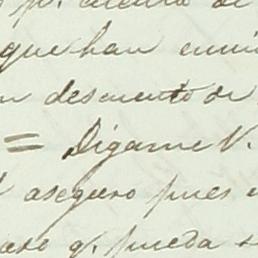 p. cuenta de
que han envi
descuento de
= Digame V.
aseguro pues
q. pueda